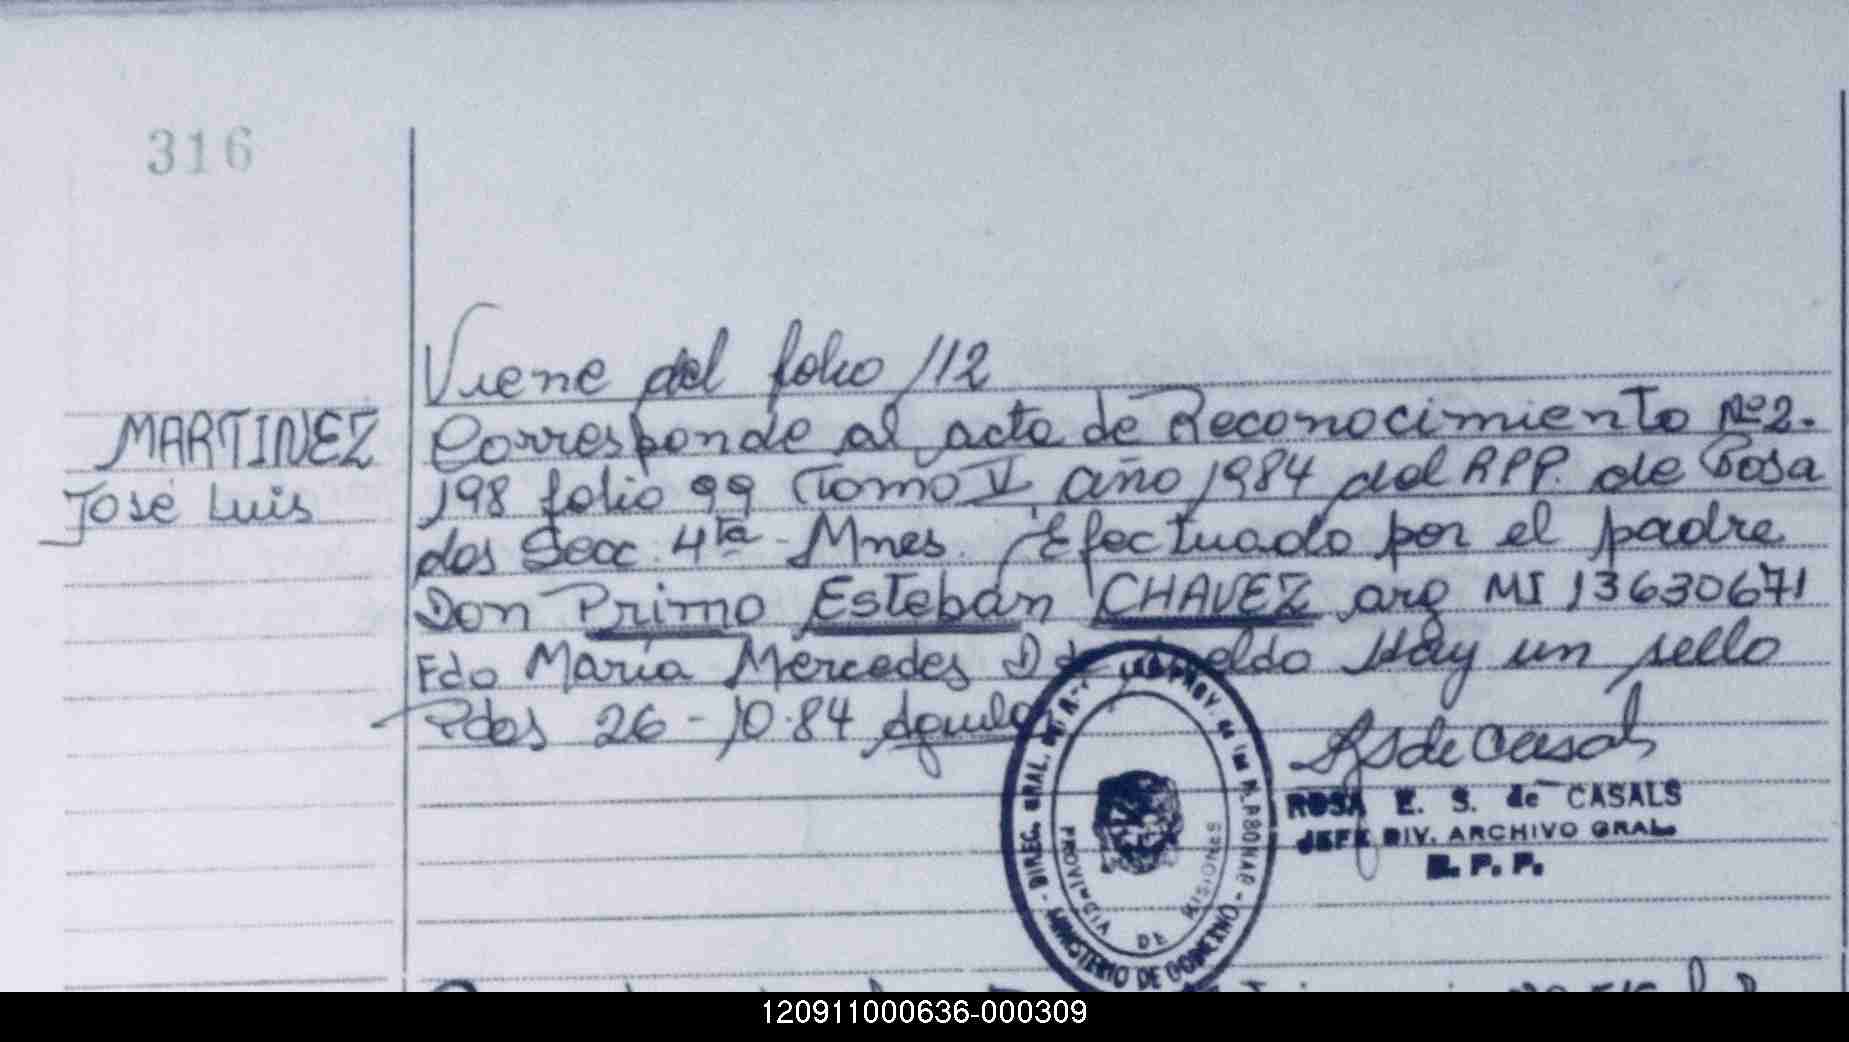 316
Viene del folio 112
MARTINEZ
José Luis
Corresponde al acta de Reconocimiento Nº 2.
198 folio 99 Tomo V año 1984 del RPP. de Posa
das Secc. 4ta - Mnes. Efectuado por el padre
Don Primo Esteban CHAVEZ arg MI 13630671
Fdo María Mercedes D de Hay un sello
Pdas 26-10-84
ROSA E. S. de CASALS
JEFE DIV. ARCHIVO GRAL.
R. P. P.
DIREC. GRAL. PROV. de las PERSONAS
MINISTERIO DE GOBIERNO
PROVINCIA DE MISIONES
120911000636-000309